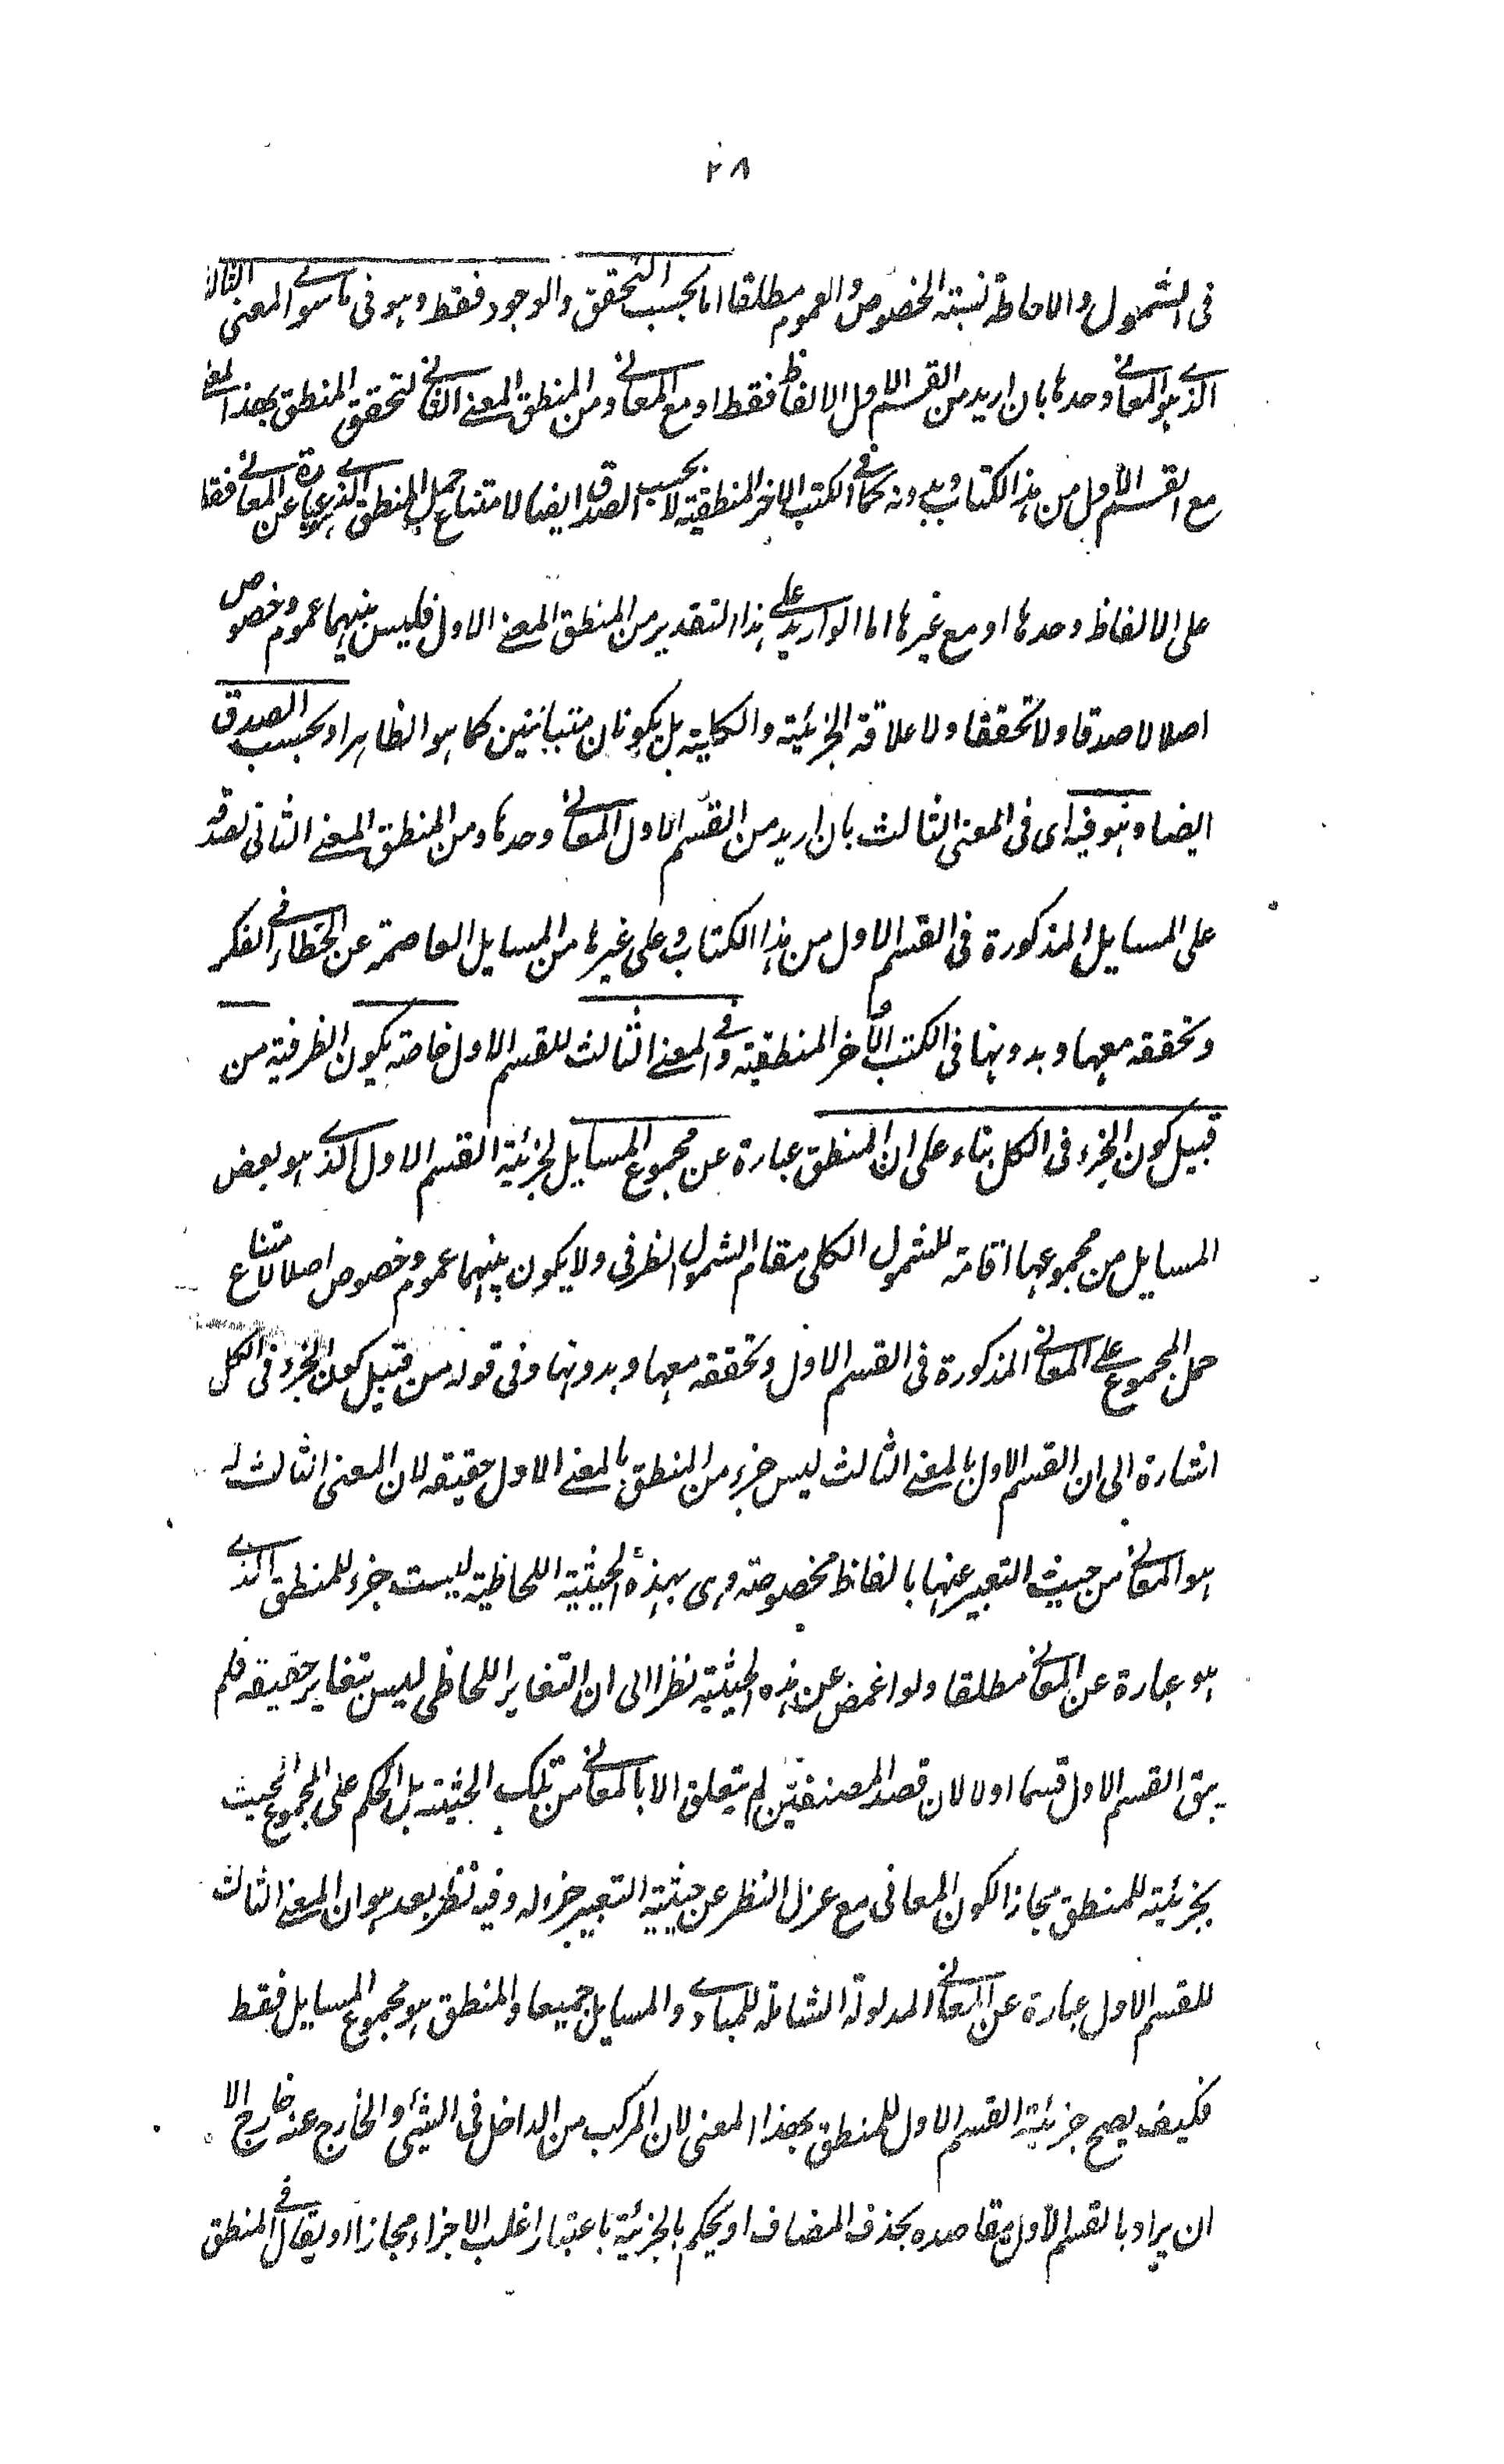 ٢٨
فى الشمول والاحاطة نسبته الخصوص والعموم مطلقا اما بحسب التحقق والوجود فقط وهو فى ما سوى المعنى الثالث
الذى هو المعانى وحدها بان اريد من القسم الاول الالفاظ فقط او مع المعانى ومن المنطق المعنى الثانى لتحقق المنطق بهذا المعنى
مع القسم الاول من هذا الكتاب وبدونه كما فى الكتب الاخر المنطقية لا بحسب الصدق ايضا لامتناع حمل المنطق الذى هو عبارة عن المعانى فقط
على الالفاظ وحدها او مع غيرها اما لو اريد على هذا التقدير من المنطق المعنى الاول فليس بينهما عموم وخصوص
اصلا لا صدقا ولا تحققا ولا علاقة الجزئية والكلية بل يكونان متبائنين كما هو الظاهر او بحسب الصدق
ايضا وهو فيه اى فى المعنى الثالث بان اريد من القسم الاول المعانى وحدها ومن المنطق المعنى الثانى لصدقه
على المسايل المذكورة فى القسم الاول من هذا الكتاب وعلى غيرها من المسايل العاصمة عن الخطاء فى الفكر
وتحققه معها وبدونها فى الكتب الأخر المنطقية وفى المعنى الثالث للقسم الاول خاصة يكون الظرفية من
قبيل كون الجزء فى الكل بناء على ان المنطق عبارة عن مجموع المسايل لجزئية القسم الاول الذى هو بعض
المسايل من مجموعها اقامة للشمول الكلى مقام الشمول الظرفى ولا يكون بينهما عموم وخصوص اصلا لامتناع
حمل المجموع على المعانى المذكورة فى القسم الاول وتحققه معها وبدونها وفى قوله من قبيل كون الجزء فى الكل
اشارة الى ان القسم الاول بالمعنى الثالث ليس جزء من المنطق بالمعنى الاول حقيقه لان المعنى الثالث له
هو المعانى من حيث التعبير عنها بالفاظ مخصوصة وهى بهذه الحيثية اللحاظية ليست جزء للمنطق الذى
هو عبارة عن المعانى مطلقا ولو اغمض عن هذه الحيثية نظرا الى ان التغاير اللحاظى ليس بتغاير حقيقه فلم
يبق القسم الاول قسما اولا لان قصد المصنفين لم يتعلق الا بالمعانى من تلك الحيثية بل الحكم على المجموع بحيث
بجزئية للمنطق مجازا لكون المعانى مع عزل النظر عن حيثية التعبير جزء له وفيه نظر بعد هو ان المعنى الثالث
للقسم الاول عبارة عن المعانى المدلولة الشاملة للمبادى والمسايل جميعا والمنطق هو مجموع المسايل فقط
فكيف يصح جزئية القسم الاول للمنطق بهذا المعنى لان المركب من الداخل فى الشئ والخارج عنه خارج الا
ان يراد بالقسم الاول مقاصده بحذف المضاف او يحكم بالجزئية باعتبار اغلب الاجزاء مجازا او يقال فى المنطق